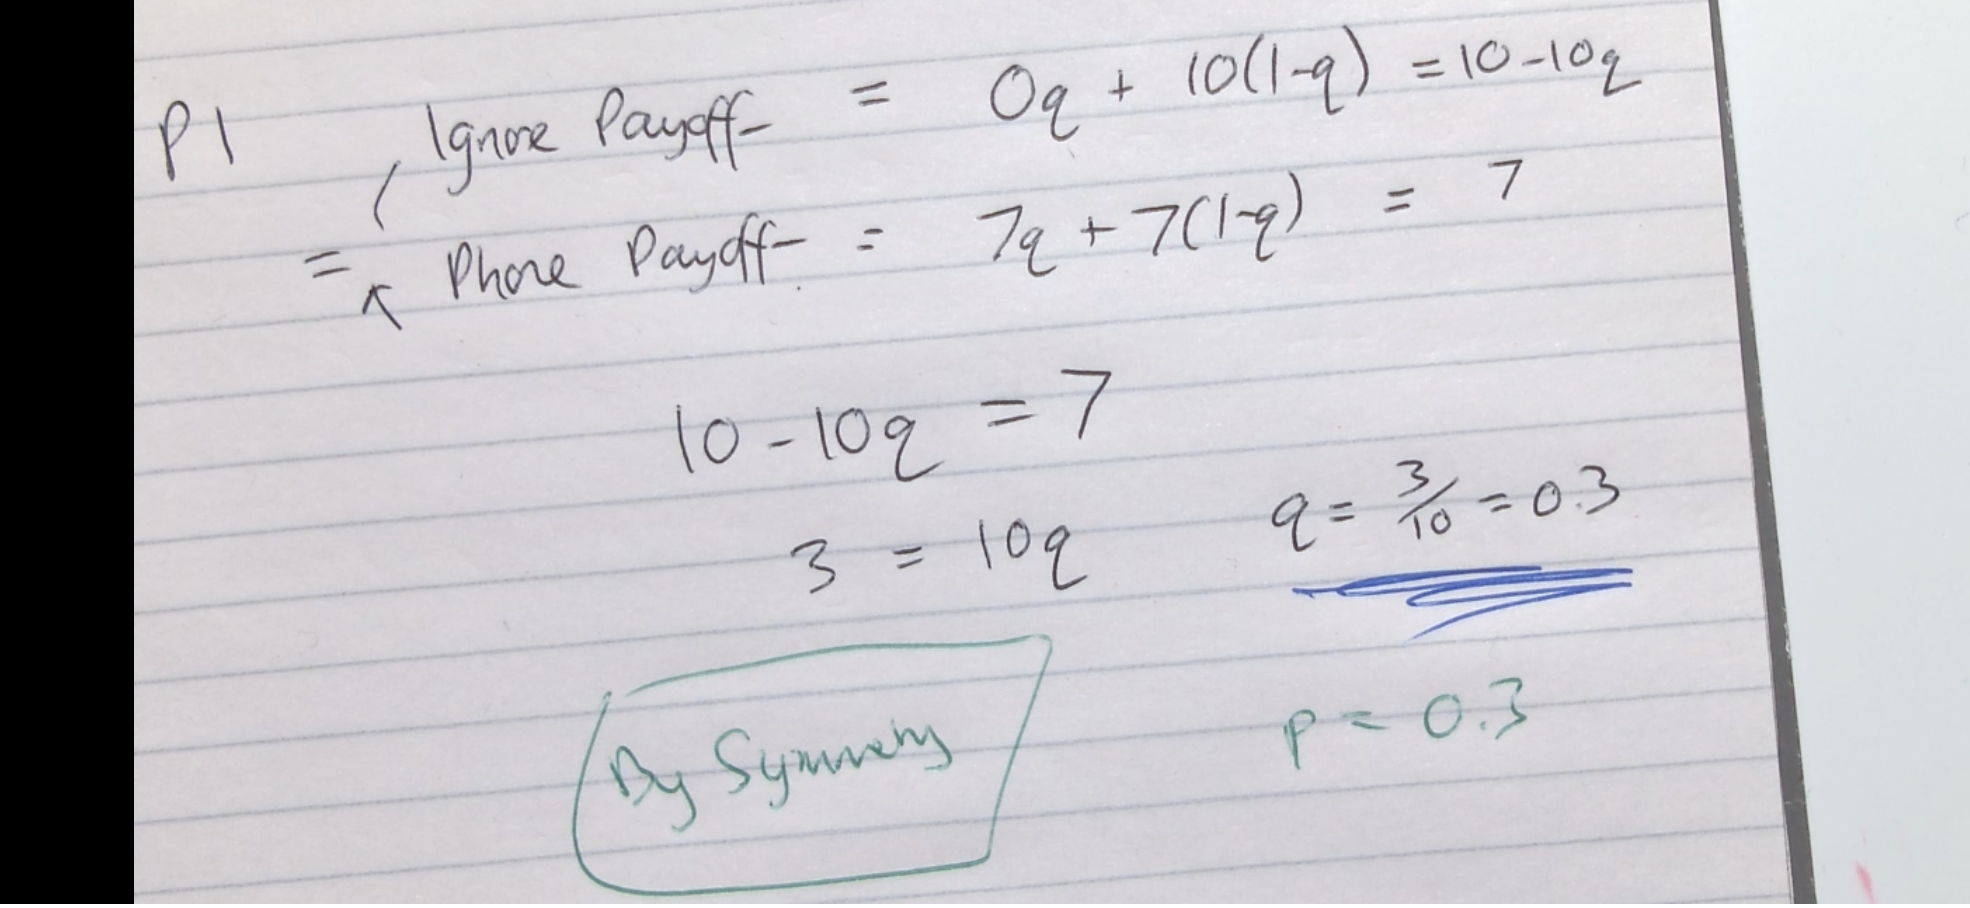 P1 Ignore Payoff = 0q + 10(1-q) = 10-10q
= Phone Payoff = 7q + 7(1-q) = 7
10 - 10q = 7
3 = 10q q = 3/10 = 0.3
By Symmetry p = 0.3